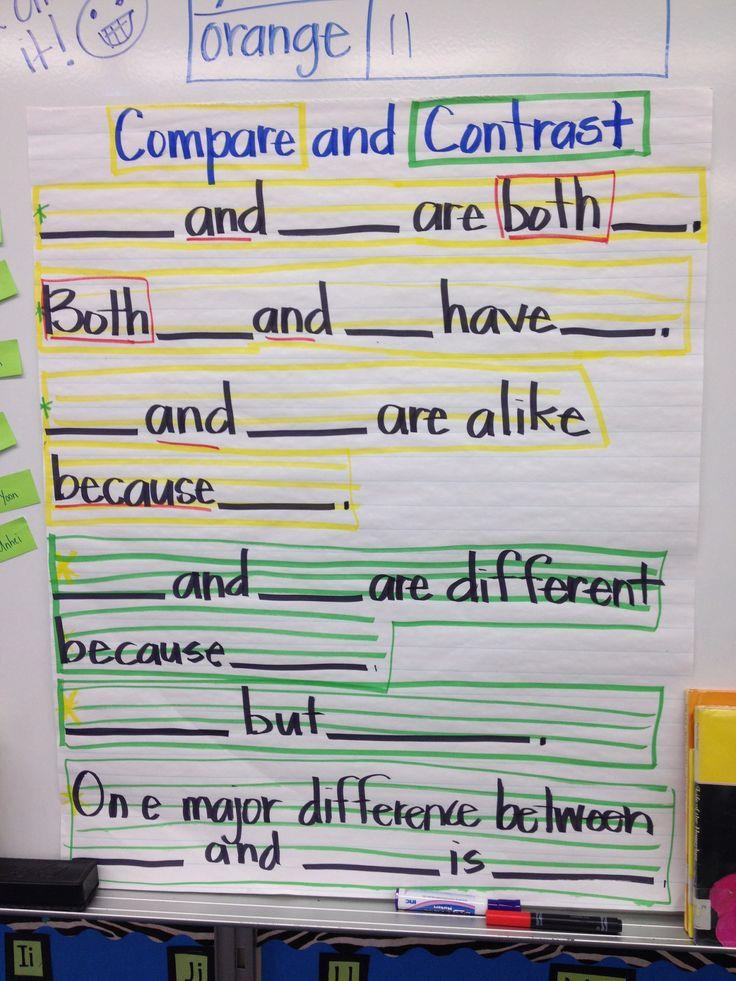 it!
orange 11
Compare and Contrast
* ____ and ____ are both ____.
* Both ____ and ____ have ____.
* ____ and ____ are alike
because ____.
* ____ and ____ are different
because ____.
* ____ but ____.
* One major difference between
____ and ____ is ____.
Yoon
Ii
Jj